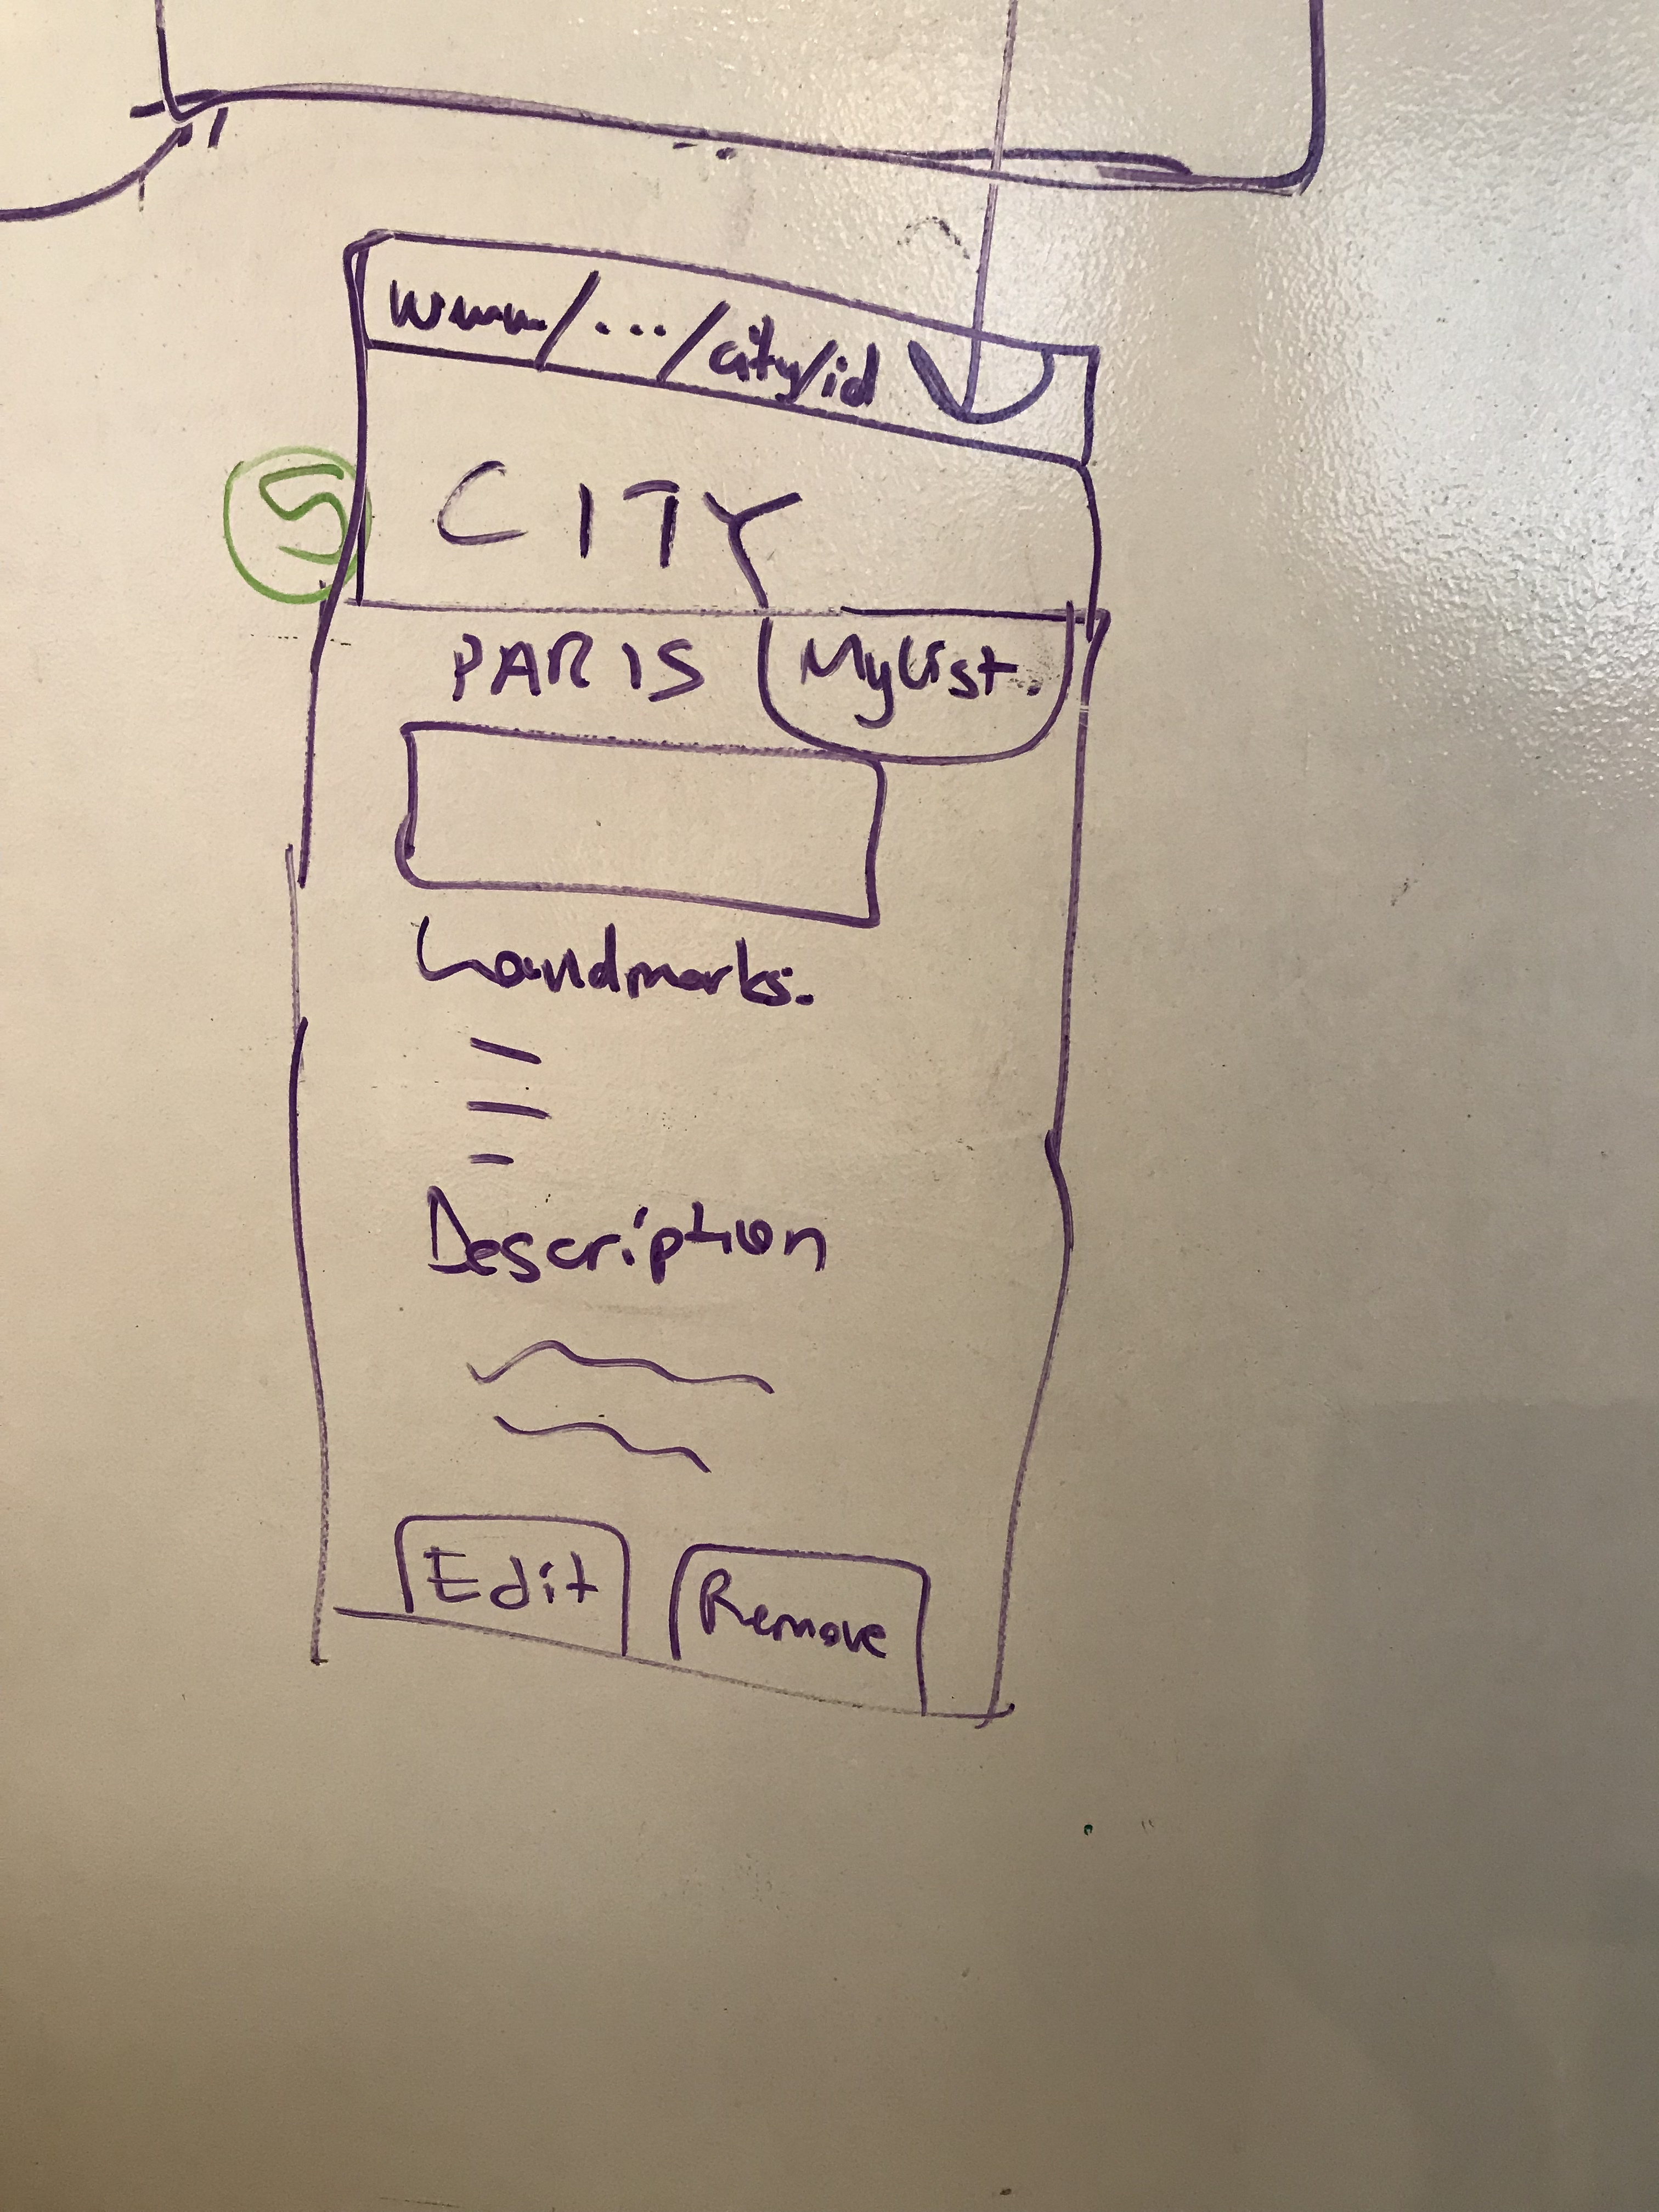 www/.../city/id
5
CITY
PARIS
MyList.
Landmarks:
Description
Edit
Remove